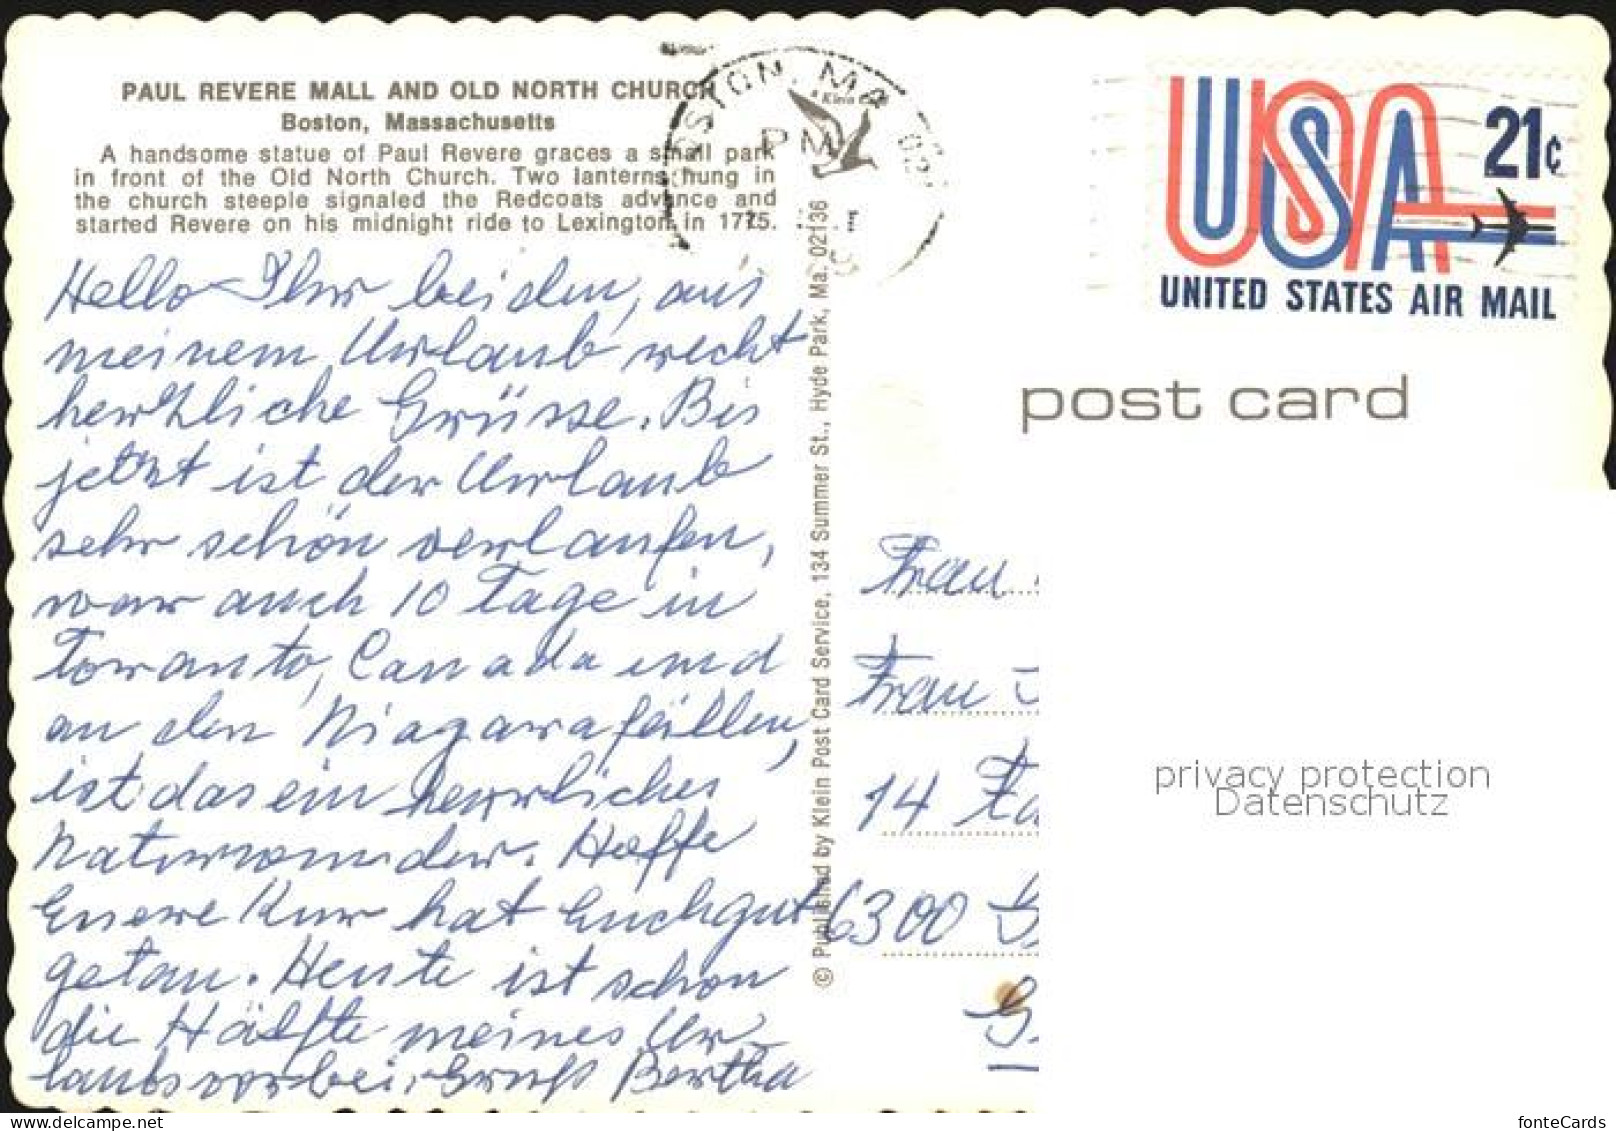 PAUL REVERE MALL AND OLD NORTH CHURCH
Boston, Massachusetts
A handsome statue of Paul Revere graces a small park
in front of the Old North Church. Two lanterns hung in
the church steeple signaled the Redcoats advance and
started Revere on his midnight ride to Lexington in 1775.
Hello Ihr beiden, aus
meinem Urlaub recht
herzliche Grüsse. Bis
jetzt ist der Urlaub
sehr schön verlaufen,
war auch 10 Tage in
Toranto, Canada und
an den Niagarafällen,
ist das ein herrliches
Naturwunder. Hoffe
Euere Kur hat Euch gut
getan. Heute ist schon
die Hälfte meines Ur-
laubs vorbei, Gruß Bertha
© Published by Klein Post Card Service, 134 Summer St., Hyde Park, Ma. 02136
A Klein Card
STON, MA
PM
USA
21¢
UNITED STATES AIR MAIL
post card
Frau
Frau
14
6300 G
G.
privacy protection
Datenschutz
fonteCards
www.delcampe.net